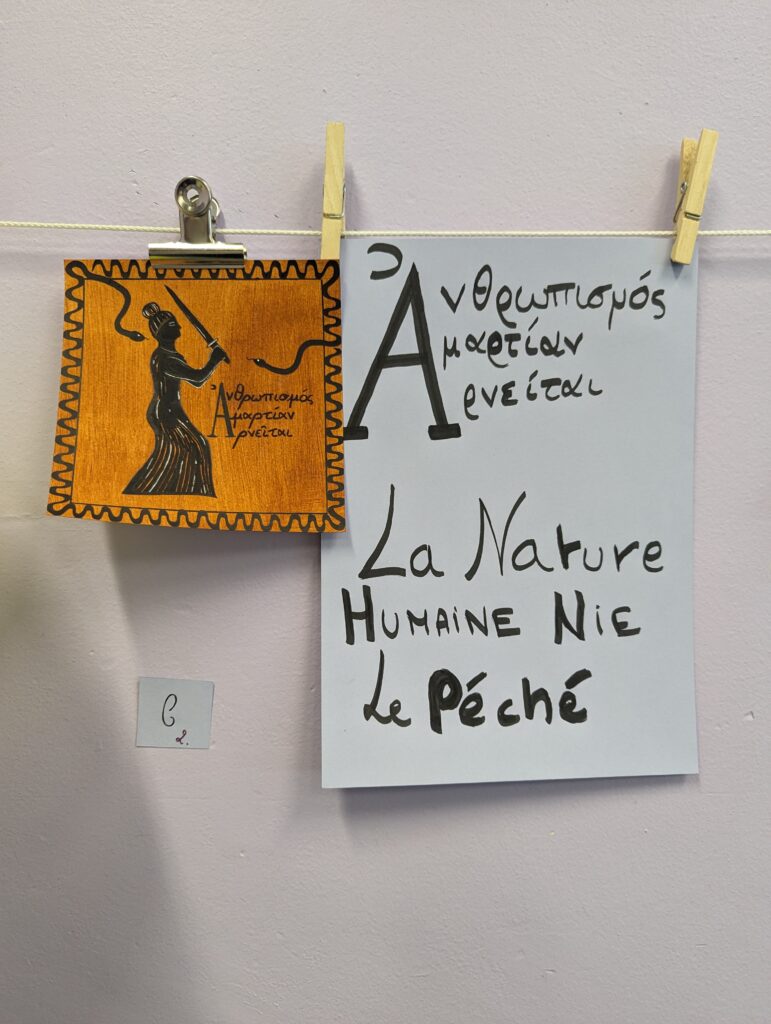 Ἀνθρωπισμός
μαρτίαν
ρνεῖται
Ἀνθρωπισμός
μαρτίαν
ρνείται
La Nature
HUMAINE NIE
Le Péché